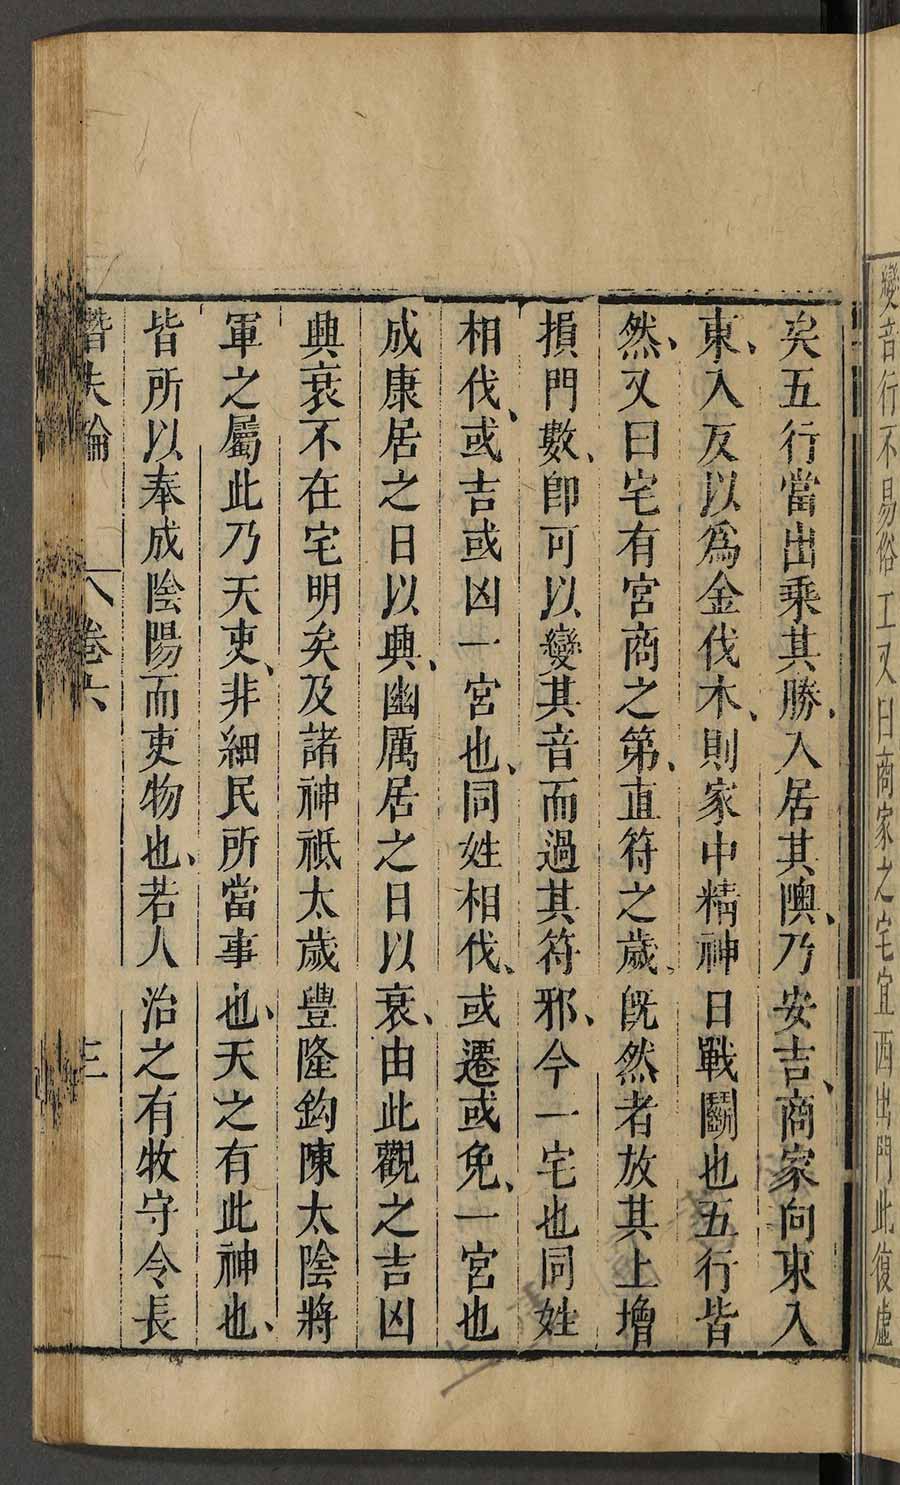 變音行不易俗工又曰商家之宅宜西出門此復虛
矣五行當出乘其勝入居其隩乃安吉商家向東入
東入反以爲金伐木則家中精神日戰鬭也五行皆
然又曰宅有宮商之第直符之歲旣然者放其上增
損門數卽可以變其音而過其符邪今一宅也同姓
相伐或吉或凶一宮也同姓相伐或遷或免一宮也
成康居之日以興幽厲居之日以衰由此觀之吉凶
興衰不在宅明矣及諸神祗太歲豐隆鈎陳太陰將
軍之屬此乃天吏非細民所當事也天之有此神也
皆所以奉成陰陽而吏物也若人治之有牧守令長
潛夫論 卷六 三